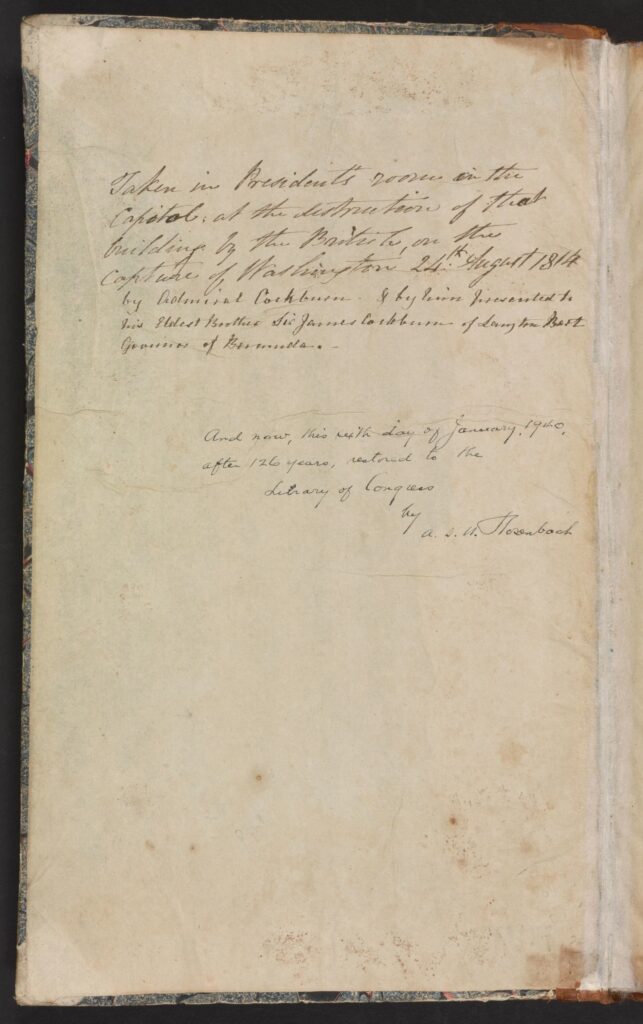 Taken in President's room in the
Capitol, at the destruction of that
building by the British, on the
capture of Washington 24th August 1814
by Admiral Cockburn. & by him presented to
his Eldest Brother Sir James Cockburn of Langton Bart
Governor of Bermuda.
And now, this sixth day of January, 1940,
after 126 years, restored to the
Library of Congress
by
A. S. W. Rosenbach